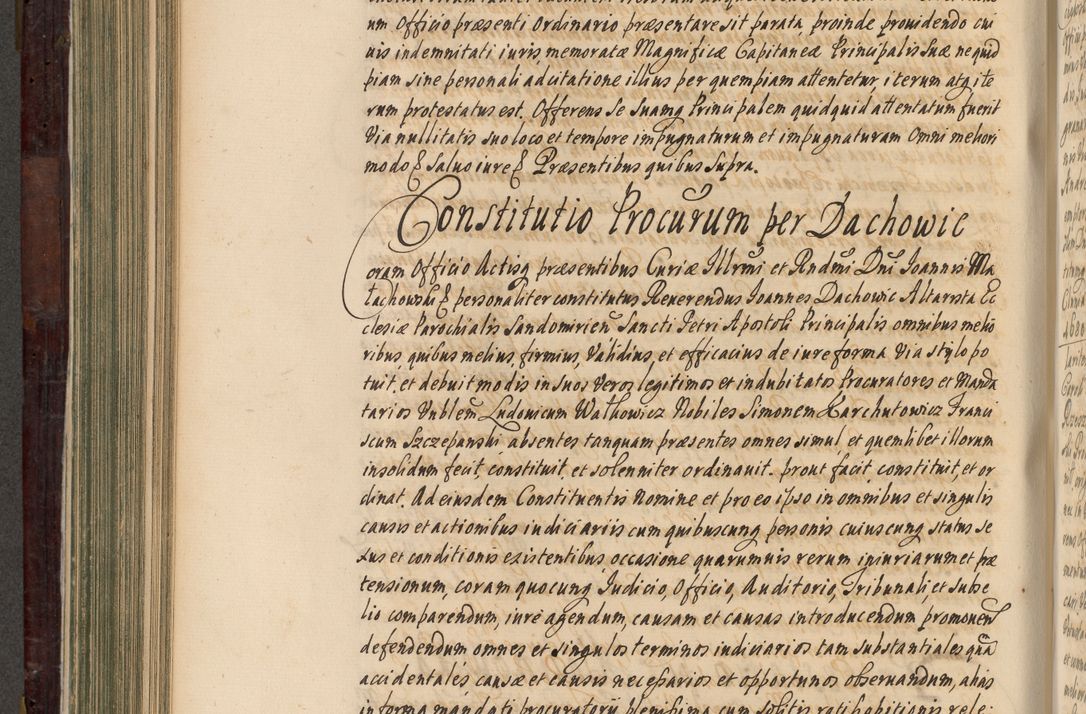 um Officio præsenti Ordinario præsentare sit parata, proinde providendo cui
uis indemnitati iuris memoratæ Magnificæ Capitaneæ Principalis Suæ ne quid
piam sine personali adcitatione illius per quempiam attentetur, iterum atq ite
rum protestatus est. Offerens se Suamq Principalem quidquid attentatum fuerit
Via nullitatis suo loco et tempore impugnaturum et impugnaturam Omni meliori
modo & Salvo iure & Præsentibus quibus supra.
Constitutio Procurum per Dachowic
oram Officio Actisq præsentibus Curiæ Illrmi et Rndmi Dni Joannis Ma
łachowski & personaliter constitutus Reverendus Joannes Dachowic Altarista Ec
clesiæ Parochialis Sandomirien Sancti Petri Apostoli Principalis omnibus melio
ribus, quibus melius, firmius, Validius, et efficacius de iure forma Via stylo po
tuit, et debuit modis in suos Veros legitimos et indubitatos Procuratores et Manda
tarios Vnblem Ludovicum Walkowicz Nobiles Simonem Karchutowicz Franci
scum Szczepanski, absentes tanquam præsentes omnes simul, et quemlibet illorum
insolidum fecit, constituit, et solenniter ordinavit. prout facit, constituit, et or
dinat. Ad eiusdem Constituentis Nomine et pro eo ipso in omnibus et singulis
causis et actionibus iudiciariis cum quibuscunq personis cuiuscunq status se
xus et conditionis existentibus, occasione quarumvis rerum iniuriarum et præ
tensionum, coram quocunq Judicio, Officio, Auditorio, Tribunali, et Subse
lio comparendum, iure agendum, causam et causas introducendum promoven
defendendum omnes et singulos terminos iudiciarios tam substantiales qua
accidentales causæ et causis necessarios et opportunos observandum, alias
in forma mandati procuratorii plenissima cum solitis ratihabitionis rele: